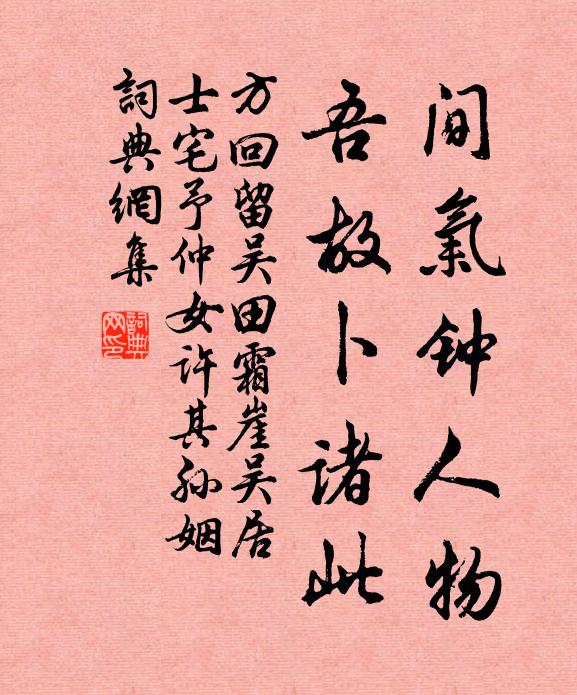 間氣钟人物
吾故卜诸此
方回留吴田霜崖吴居
士宅予仲女许其孙姻
詞典網集
詞典網印